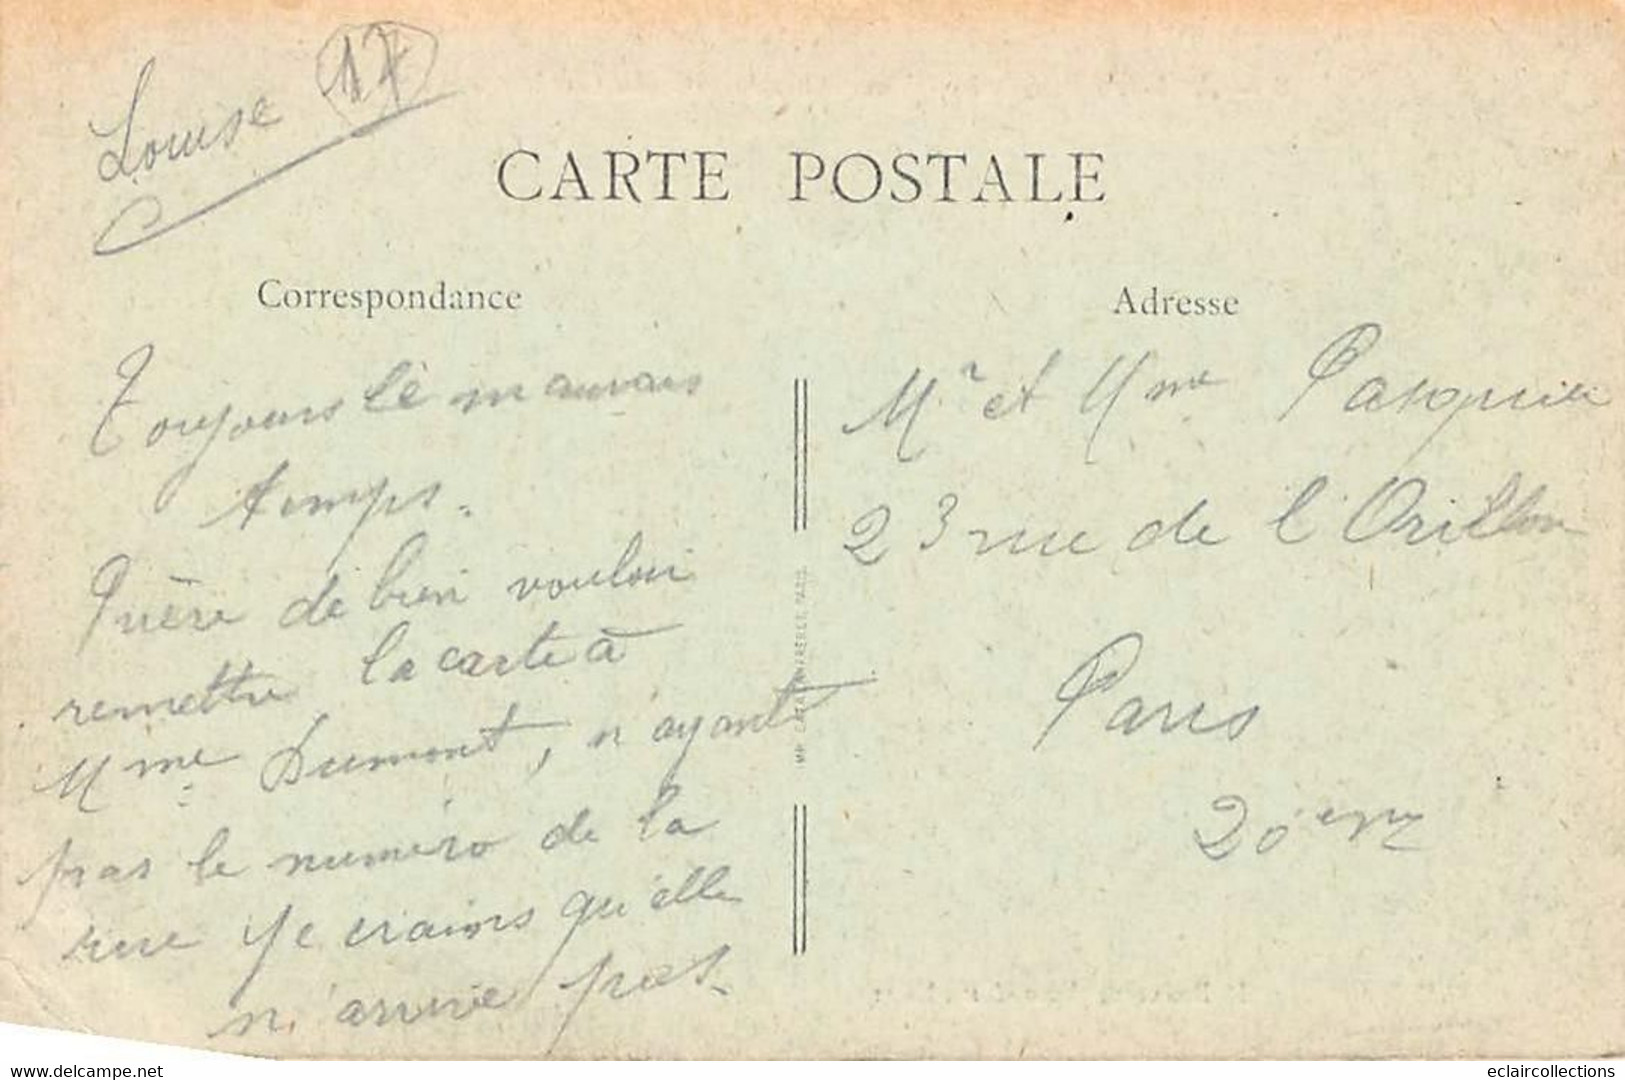 Louise 17
CARTE POSTALE
Correspondance
Adresse
Toujours le mauvais
temps.
Prière de bien vouloir
remettre la carte à
Mme Dumont, n'ayant
pas le numéro de la
rue je crains qu'elle
n'arrive pas.
Mr et Mme Pasquier
23 rue de l'Orillon
Paris
20ème
IMP. CATALA FRERES, PARIS
eclaircollections
www.delcampe.net